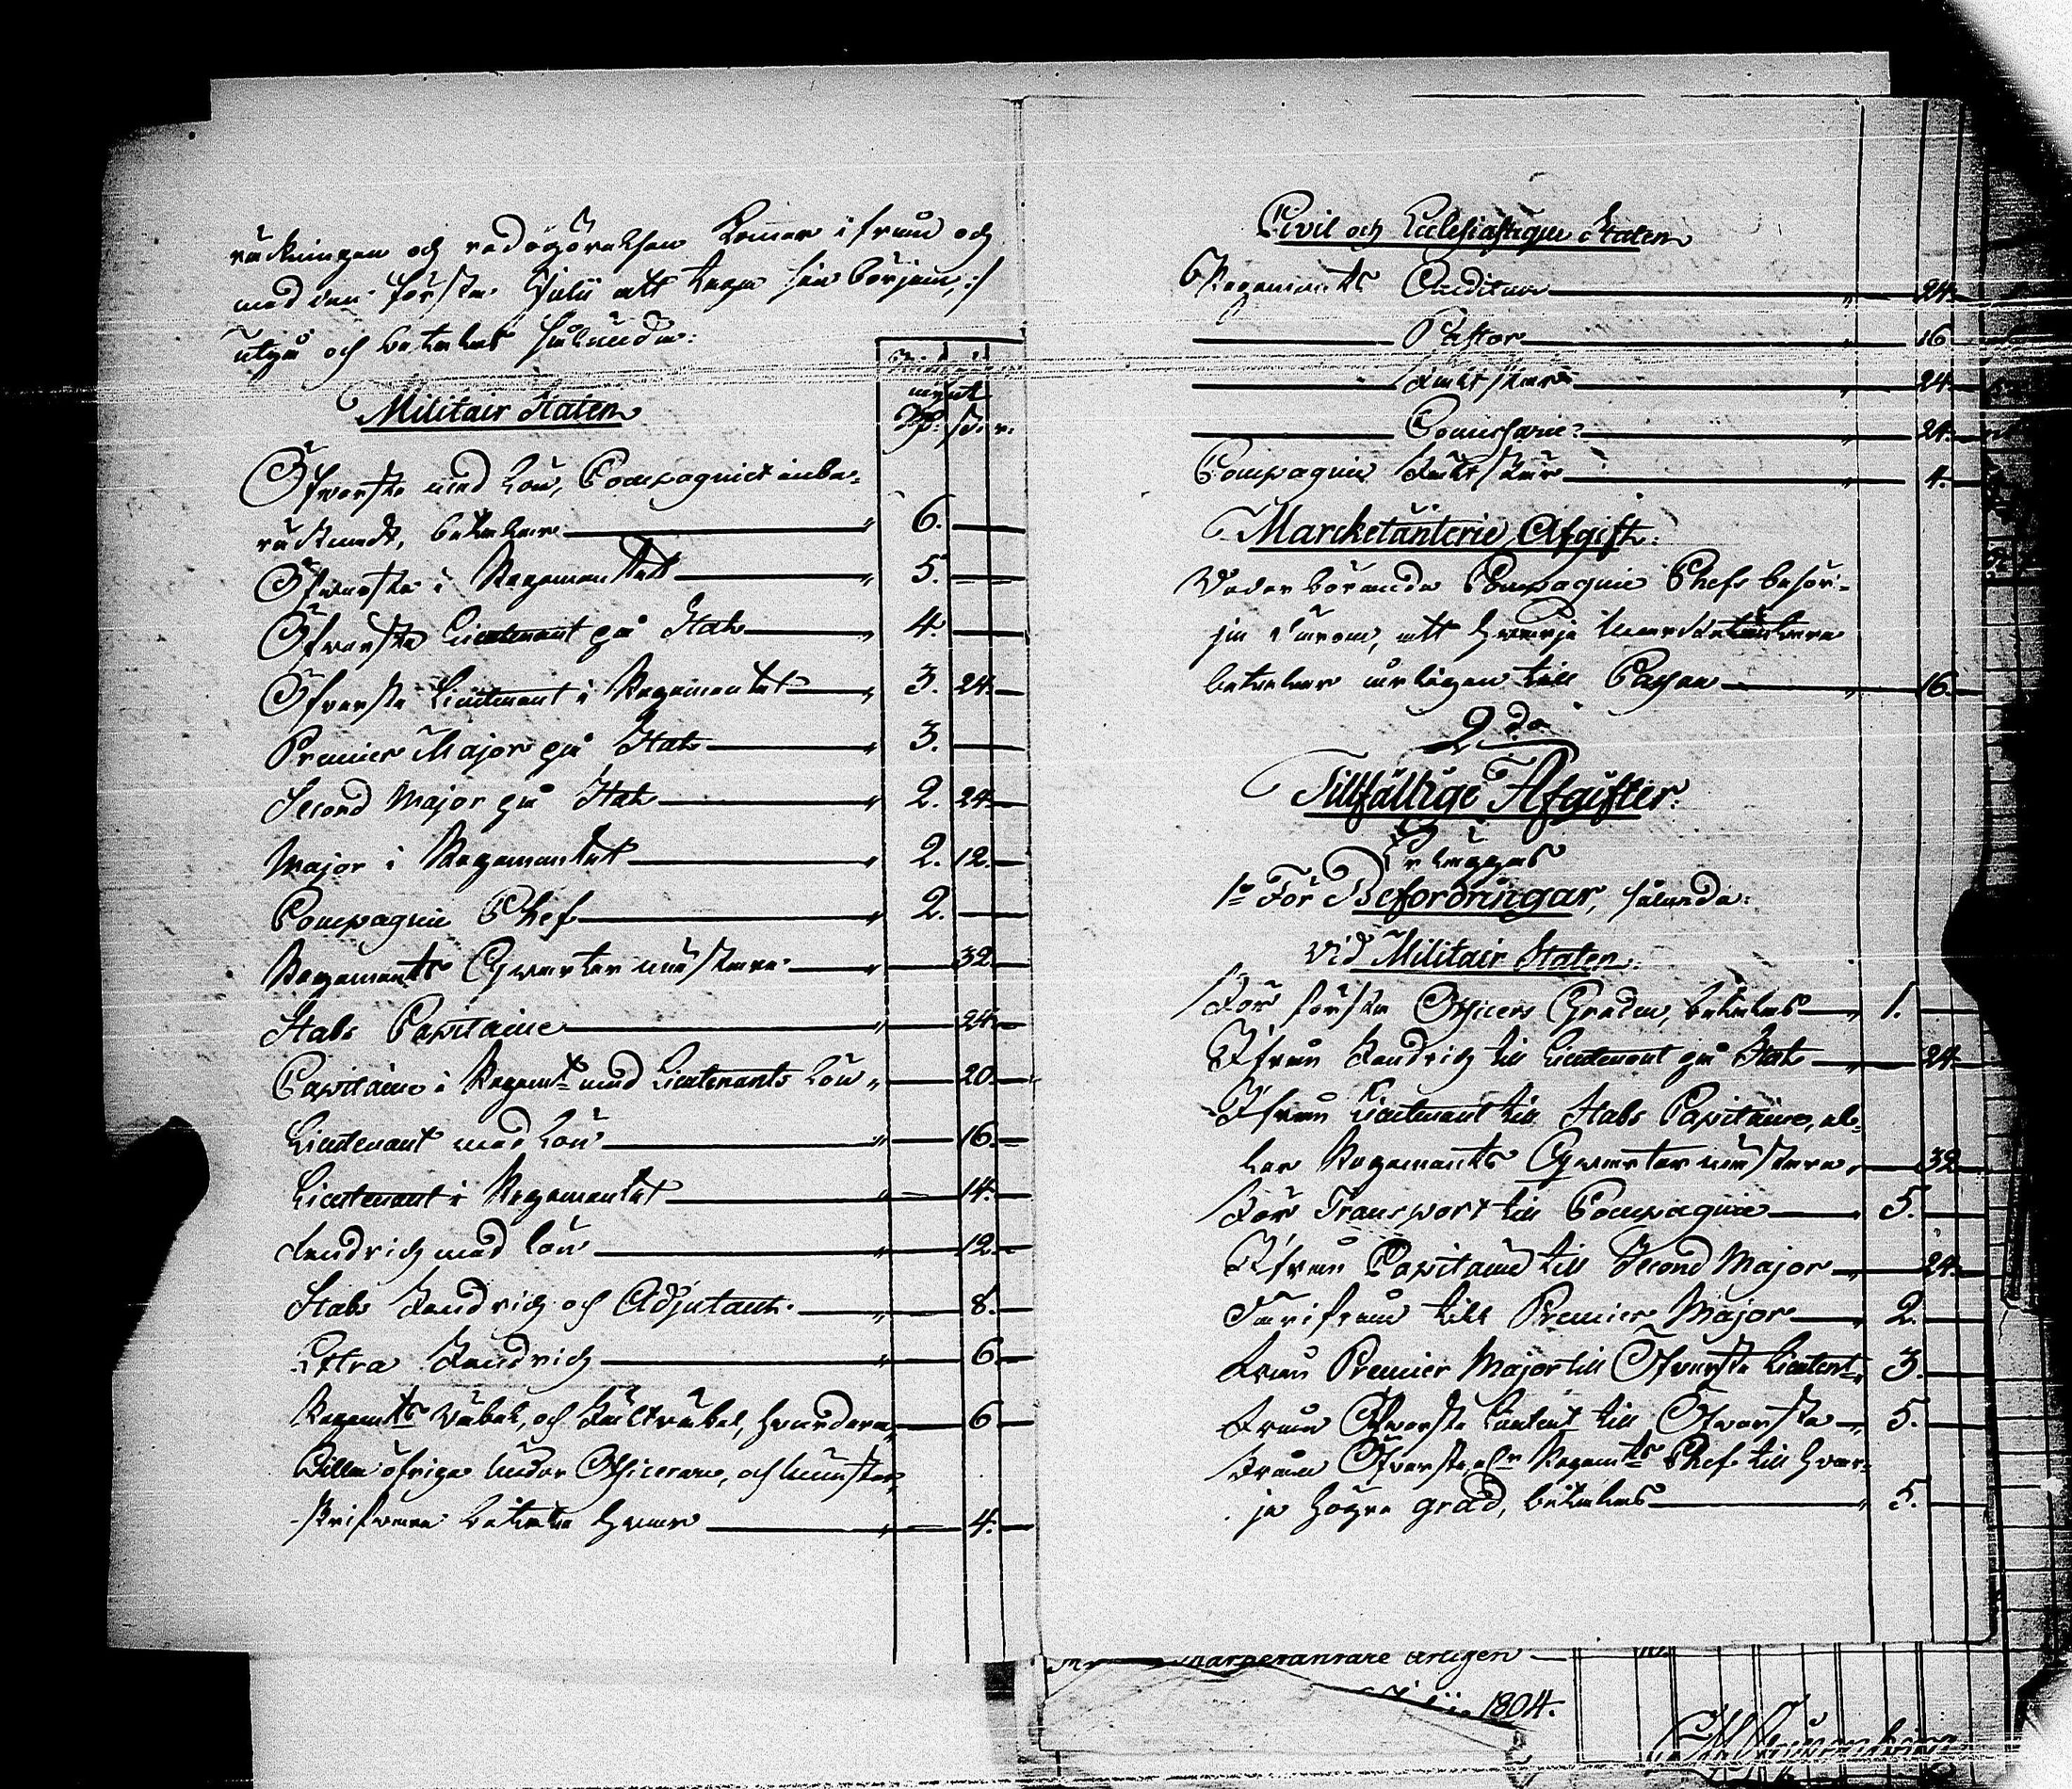 räkningen och redogörelsen komer ifrån och
med den förste Julii att taga sin början,
utgå och betalas sålunda:
mynt
Rd. sk. r.
Militair Staten
Öfverste med Lön, Compagniet inbe-
räknadt, betalar 6.
Öfverste i Regementet 5.
Öfverste Lieutenant på Stat 4.
Öfverste Lieutenant i Regementet 3. 24.
Premier Major på Stat 3.
Second Major på Stat 2. 24
Major i Regementet 2. 12.
Compagnie Chef 2.
Regements Qwartermästare 32.
Stabs Capitaine 24.
Capitaine i Regemt med Lieutenants Lön 20.
Lieutenant med Lön 16.
Lieutenant i Regementet 14.
Fendrich med Lön 12.
Stabs Fendrich och Adjutant 8.
Extra Fendrich 6.
Regemts Väbel, och Fältväbel, hvardera 6
Alla öfriga Under Officerare, och Mönster-
skrifvare betala hvar 4.
Civil och Ecclesiastique Staten
Regements Auditeur 24.
Pastor 16
Fältskär 24.
Comissarie 24.
Compagnie Fältskär 4.
Marcketänterie Afgift.
Vederbörande Compagnie Chef besör-
jer därom, att hvarje Marcketäntare
betalar årligen till Cassan 16.
2do
Tillfällige Afgifter.
Erläggas
1o För Befordringar, sålunda:
vid Militair Staten.
För förste Officers Graden, betalas 1.
Ifrån Fendrich till Lieutenant på Stat 24
Ifrån Lieutenant till Stabs Capitaine, el-
ler Regements Qwartermästare 32
För Transport till Compagnie 5.
Ifrån Capitaine till Second Major 24.
Därifrån till Premier Major 2.
Från Premier Major till Öfverste Lieutent 3.
Från Öfverste Lieutent till Öfverste 5.
Från Öfverste, elr Regemts Chef till hvar-
je högre grad, betalas 5.
årligen
1804.